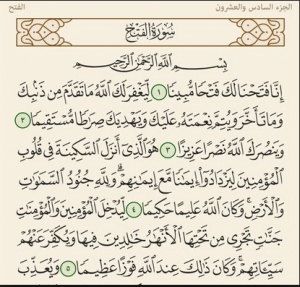 الجزء السادس والعشرون
الفتح
سُورَةُ الفَتْحِ
بِسْمِ اللَّهِ الرَّحْمَٰنِ الرَّحِيمِ
إِنَّا فَتَحْنَا لَكَ فَتْحًا مُّبِينًا ١ لِّيَغْفِرَ لَكَ اللَّهُ مَا تَقَدَّمَ مِن ذَنۢبِكَ
وَمَا تَأَخَّرَ وَيُتِمَّ نِعْمَتَهُۥ عَلَيْكَ وَيَهْدِيَكَ صِرَٰطًا مُّسْتَقِيمًا ٢
وَيَنصُرَكَ اللَّهُ نَصْرًا عَزِيزًا ٣ هُوَ الَّذِىٓ أَنزَلَ السَّكِينَةَ فِى قُلُوبِ
الْمُؤْمِنِينَ لِيَزْدَادُوٓا۟ إِيمَٰنًا مَّعَ إِيمَٰنِهِمْ ۗ وَلِلَّهِ جُنُودُ السَّمَٰوَٰتِ
وَالْأَرْضِ ۚ وَكَانَ اللَّهُ عَلِيمًا حَكِيمًا ٤ لِّيُدْخِلَ الْمُؤْمِنِينَ وَالْمُؤْمِنَٰتِ
جَنَّٰتٍ تَجْرِى مِن تَحْتِهَا الْأَنْهَٰرُ خَٰلِدِينَ فِيهَا وَيُكَفِّرَ عَنْهُمْ
سَيِّـَٔاتِهِمْ ۚ وَكَانَ ذَٰلِكَ عِندَ اللَّهِ فَوْزًا عَظِيمًا ٥ وَيُعَذِّبَ